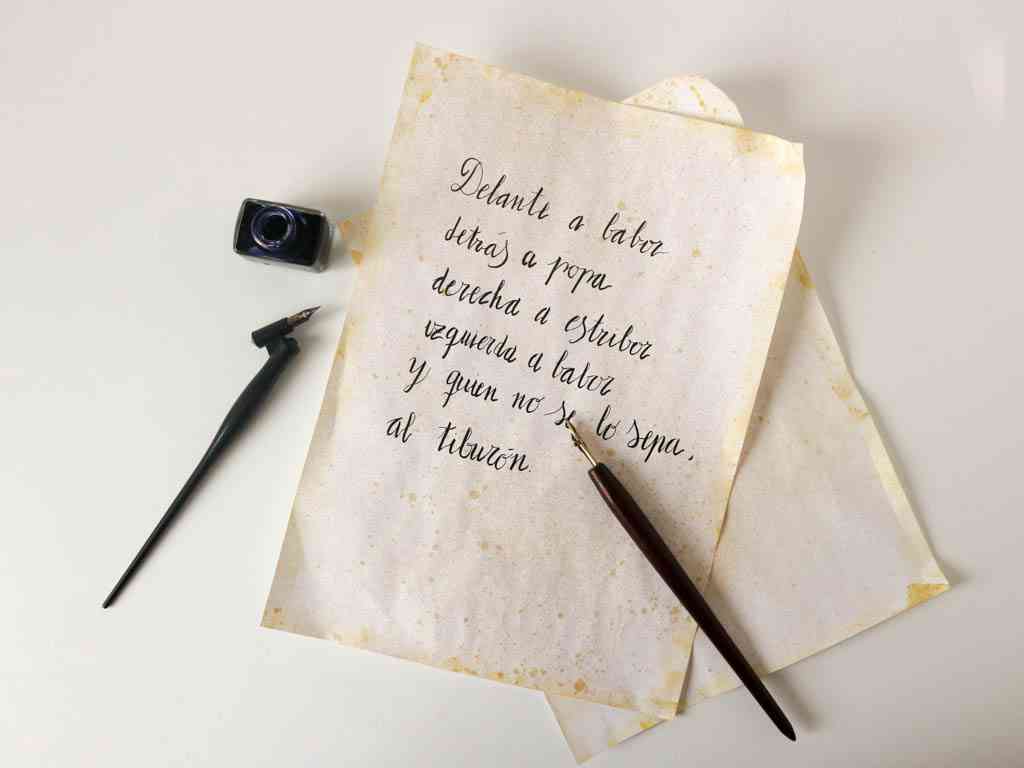 Delante a babor
detrás a popa
derecha a estribor
izquierda a babor
Y quien no se lo sepa,
al tiburón.